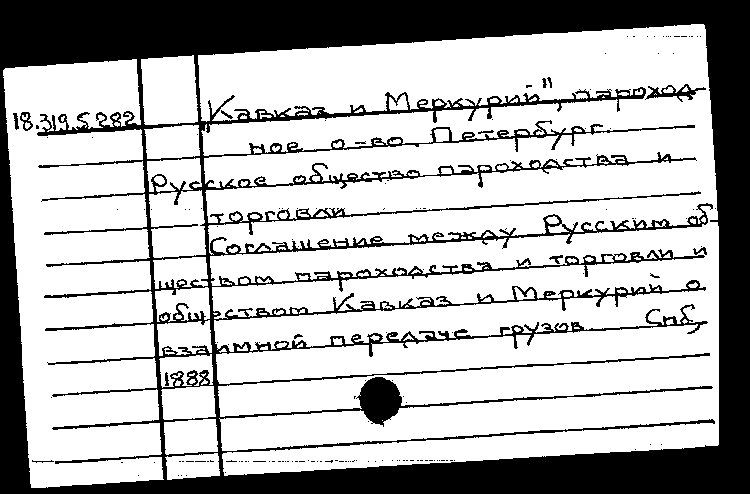 18.319.5.282
„Кавказ и Меркурий", пароход-
ное о-во. Петербург.
Русское общество пароходства и
торговли
Соглашение между Русским об-
ществом пароходства и торговли и
обществом Кавказ и Меркурий о
взаимной передаче грузов. Спб,
1888